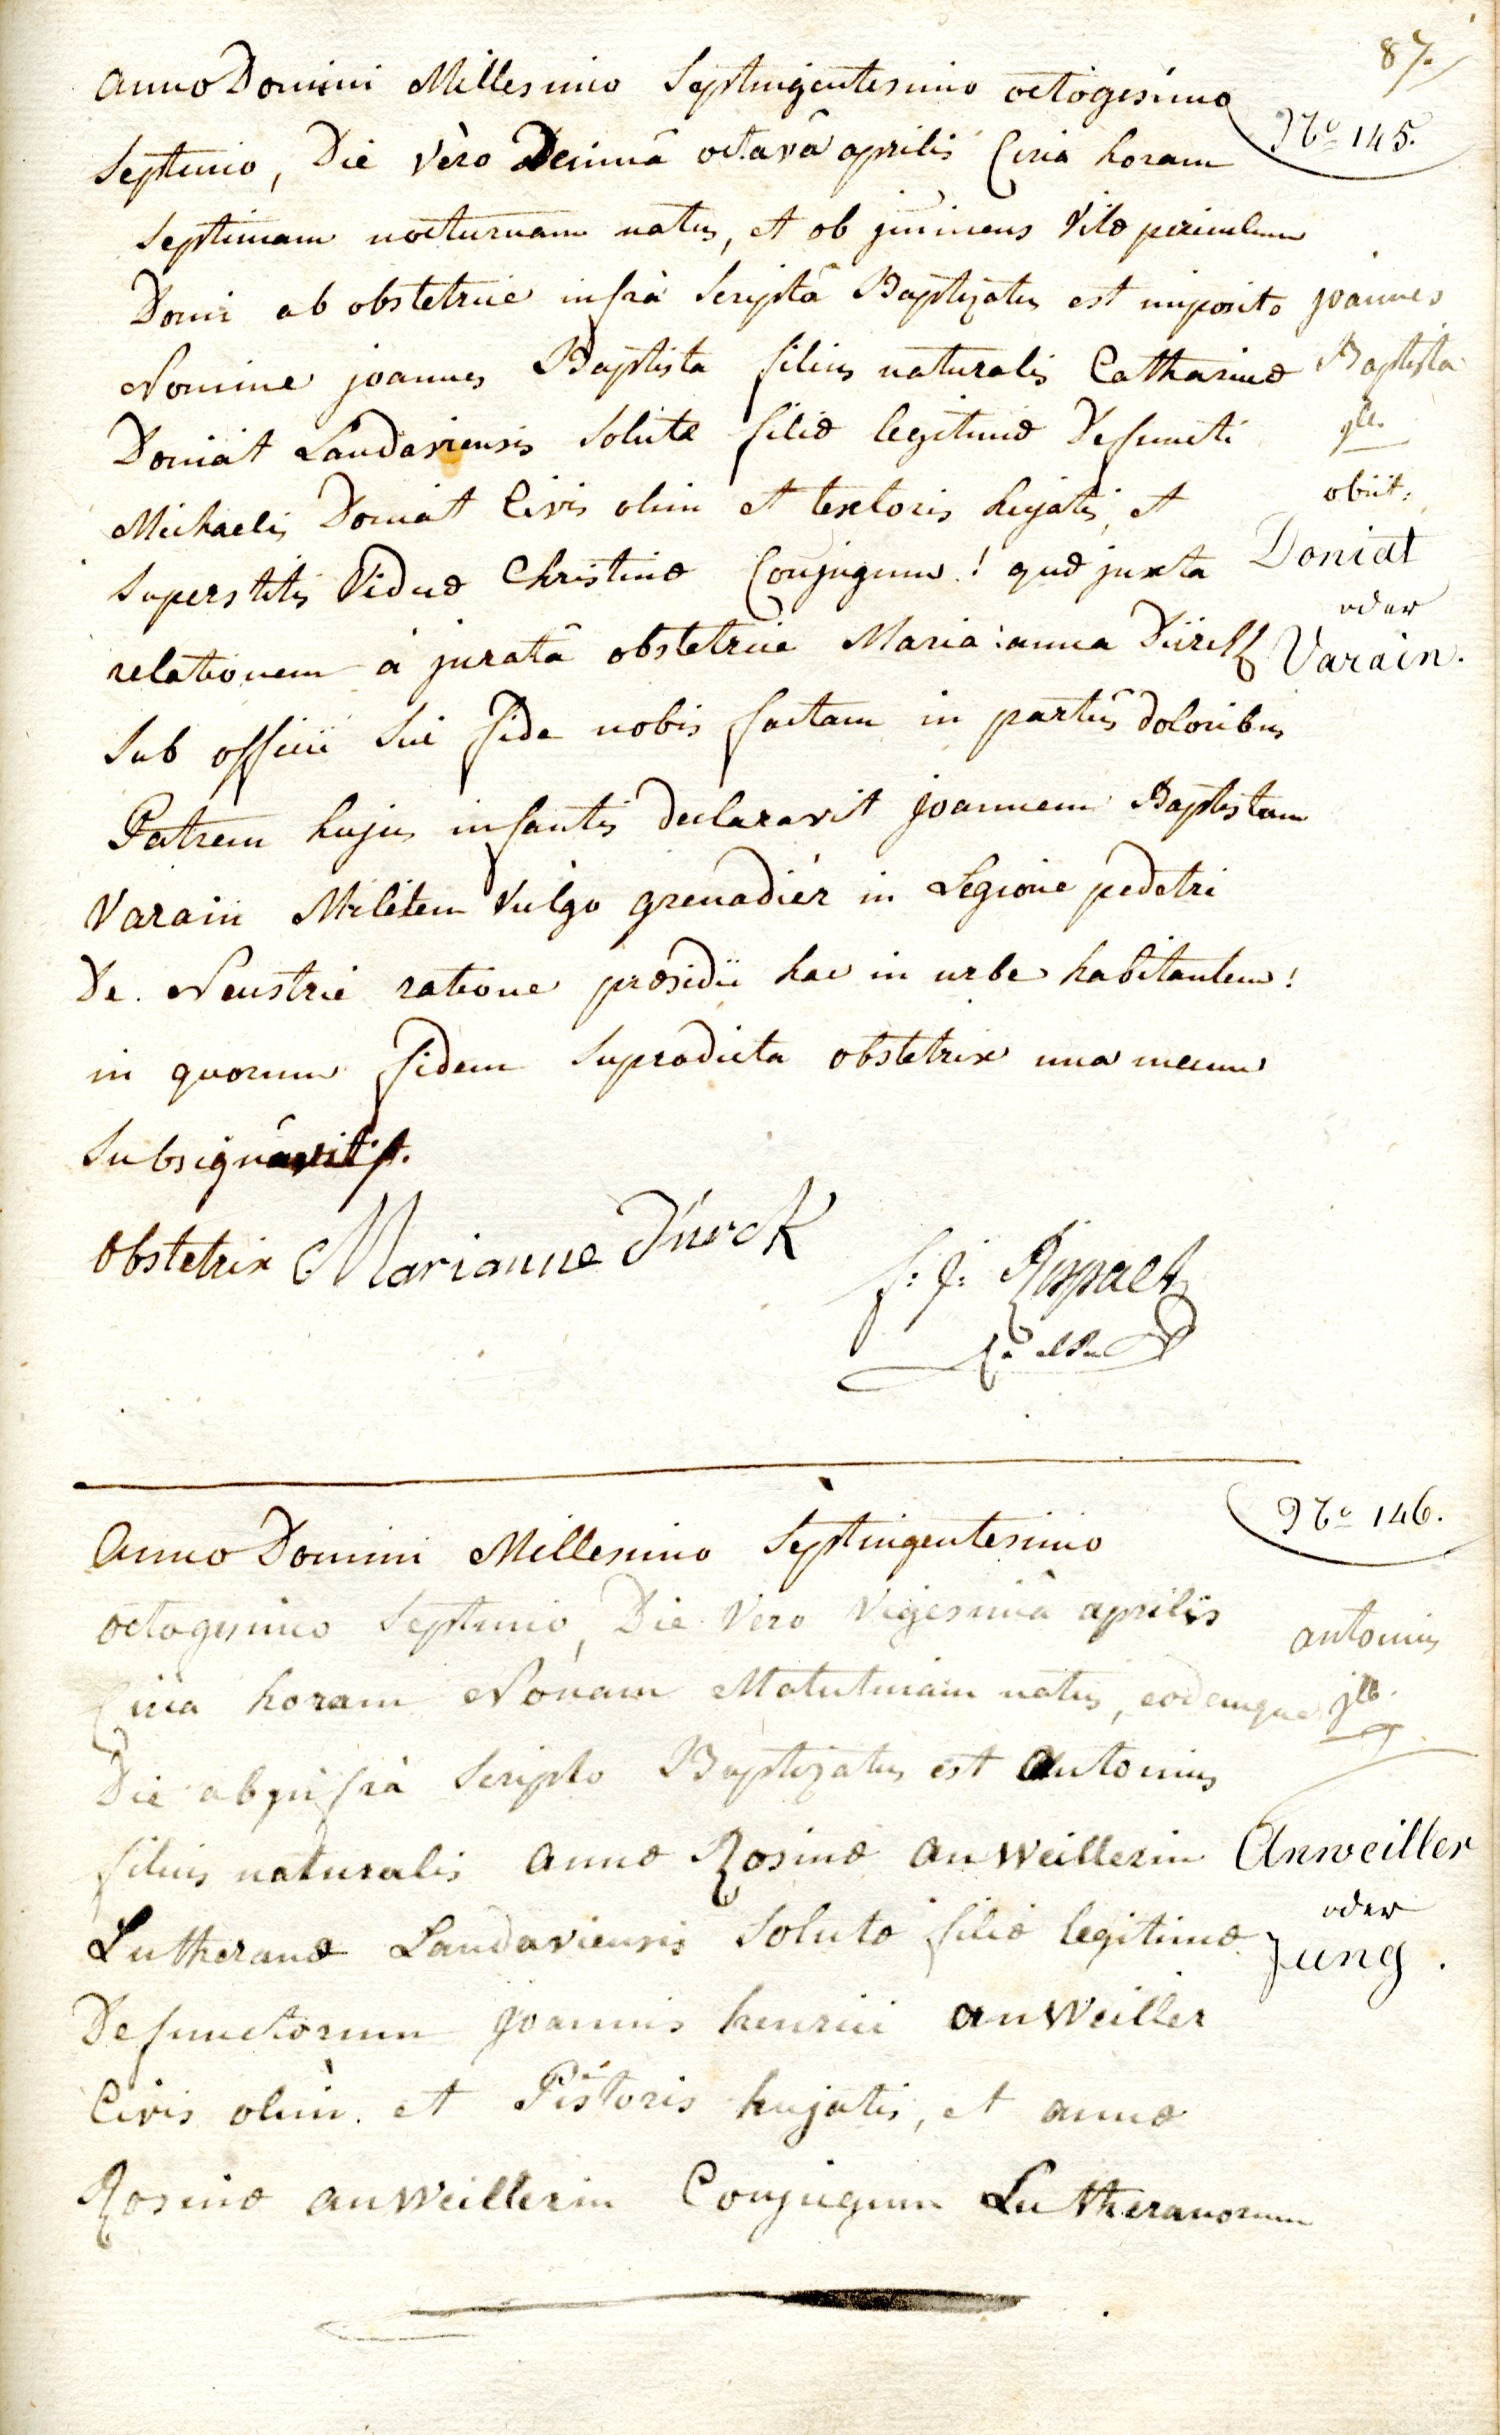 87.
Anno Domini Millesimo Septingentesimo octogesimo
Nº 145.
Septimo, Die vèro Decimâ octavâ aprilis Circa horam
Septimam nocturnam natus, et ob iminens Vitæ periculum
Domi ab obstetrice infrà Scriptâ Baptizatus est imposito
joannes
Nomine joannes Baptista filius naturalis Catharinæ
Baptista
Doniat Landaviensis Solutæ filiæ legitimæ Defuncti
jll.
Michaelis Doniat Civis olim et textoris hujatis, et
obiit.
Superstitis Viduæ Christinæ Conjugum! quæ juxta
Doniat
oder
relationem à juratâ obstetrice Maria anna Dürck
Varain.
Sub officii Sui fide nobis factam in partûs doloribus
Patrem hujus infantis declaravit joannem Baptistam
Varain Militem Vulgo grenadiér in Legione pedetri
De Neustrie ratione præsidii hac in urbe habitantem!
in quorum fidem Supradicta obstetrix una mecum
Subsignavit.
Obstetrix Marianne Dürck
Anno Domini Millesimo Septingentesimo
Nº 146.
octogesimo Septimo, Die Vero Vigesimâ aprilis
Circa horam Nonam Matutinam natus, eodemque
antonius
jll.
Die ab infrà Scripto Baptizatus est Antonius
filius naturalis Annæ Rosinæ Anweillerin
Anweiller
Lutheranæ Landaviensis Solutæ filiæ legitimæ
oder
Jung.
Defunctorum joannis henrici anweiller
Civis olim et Pistoris hujatis, et annæ
Rosinæ anweillerin Conjugum Lutheranorum